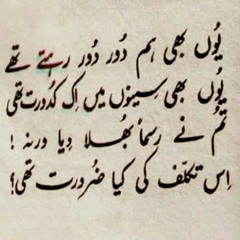 یُوں بھی ہم دُور دُور رہتے تھے
یُوں بھی سِینوں میں اِک کدُورت تھی
تُم نے رسماً بھلا دِیا ورنہ !
اِس تکلّف کی کیا ضرورت تھی؟